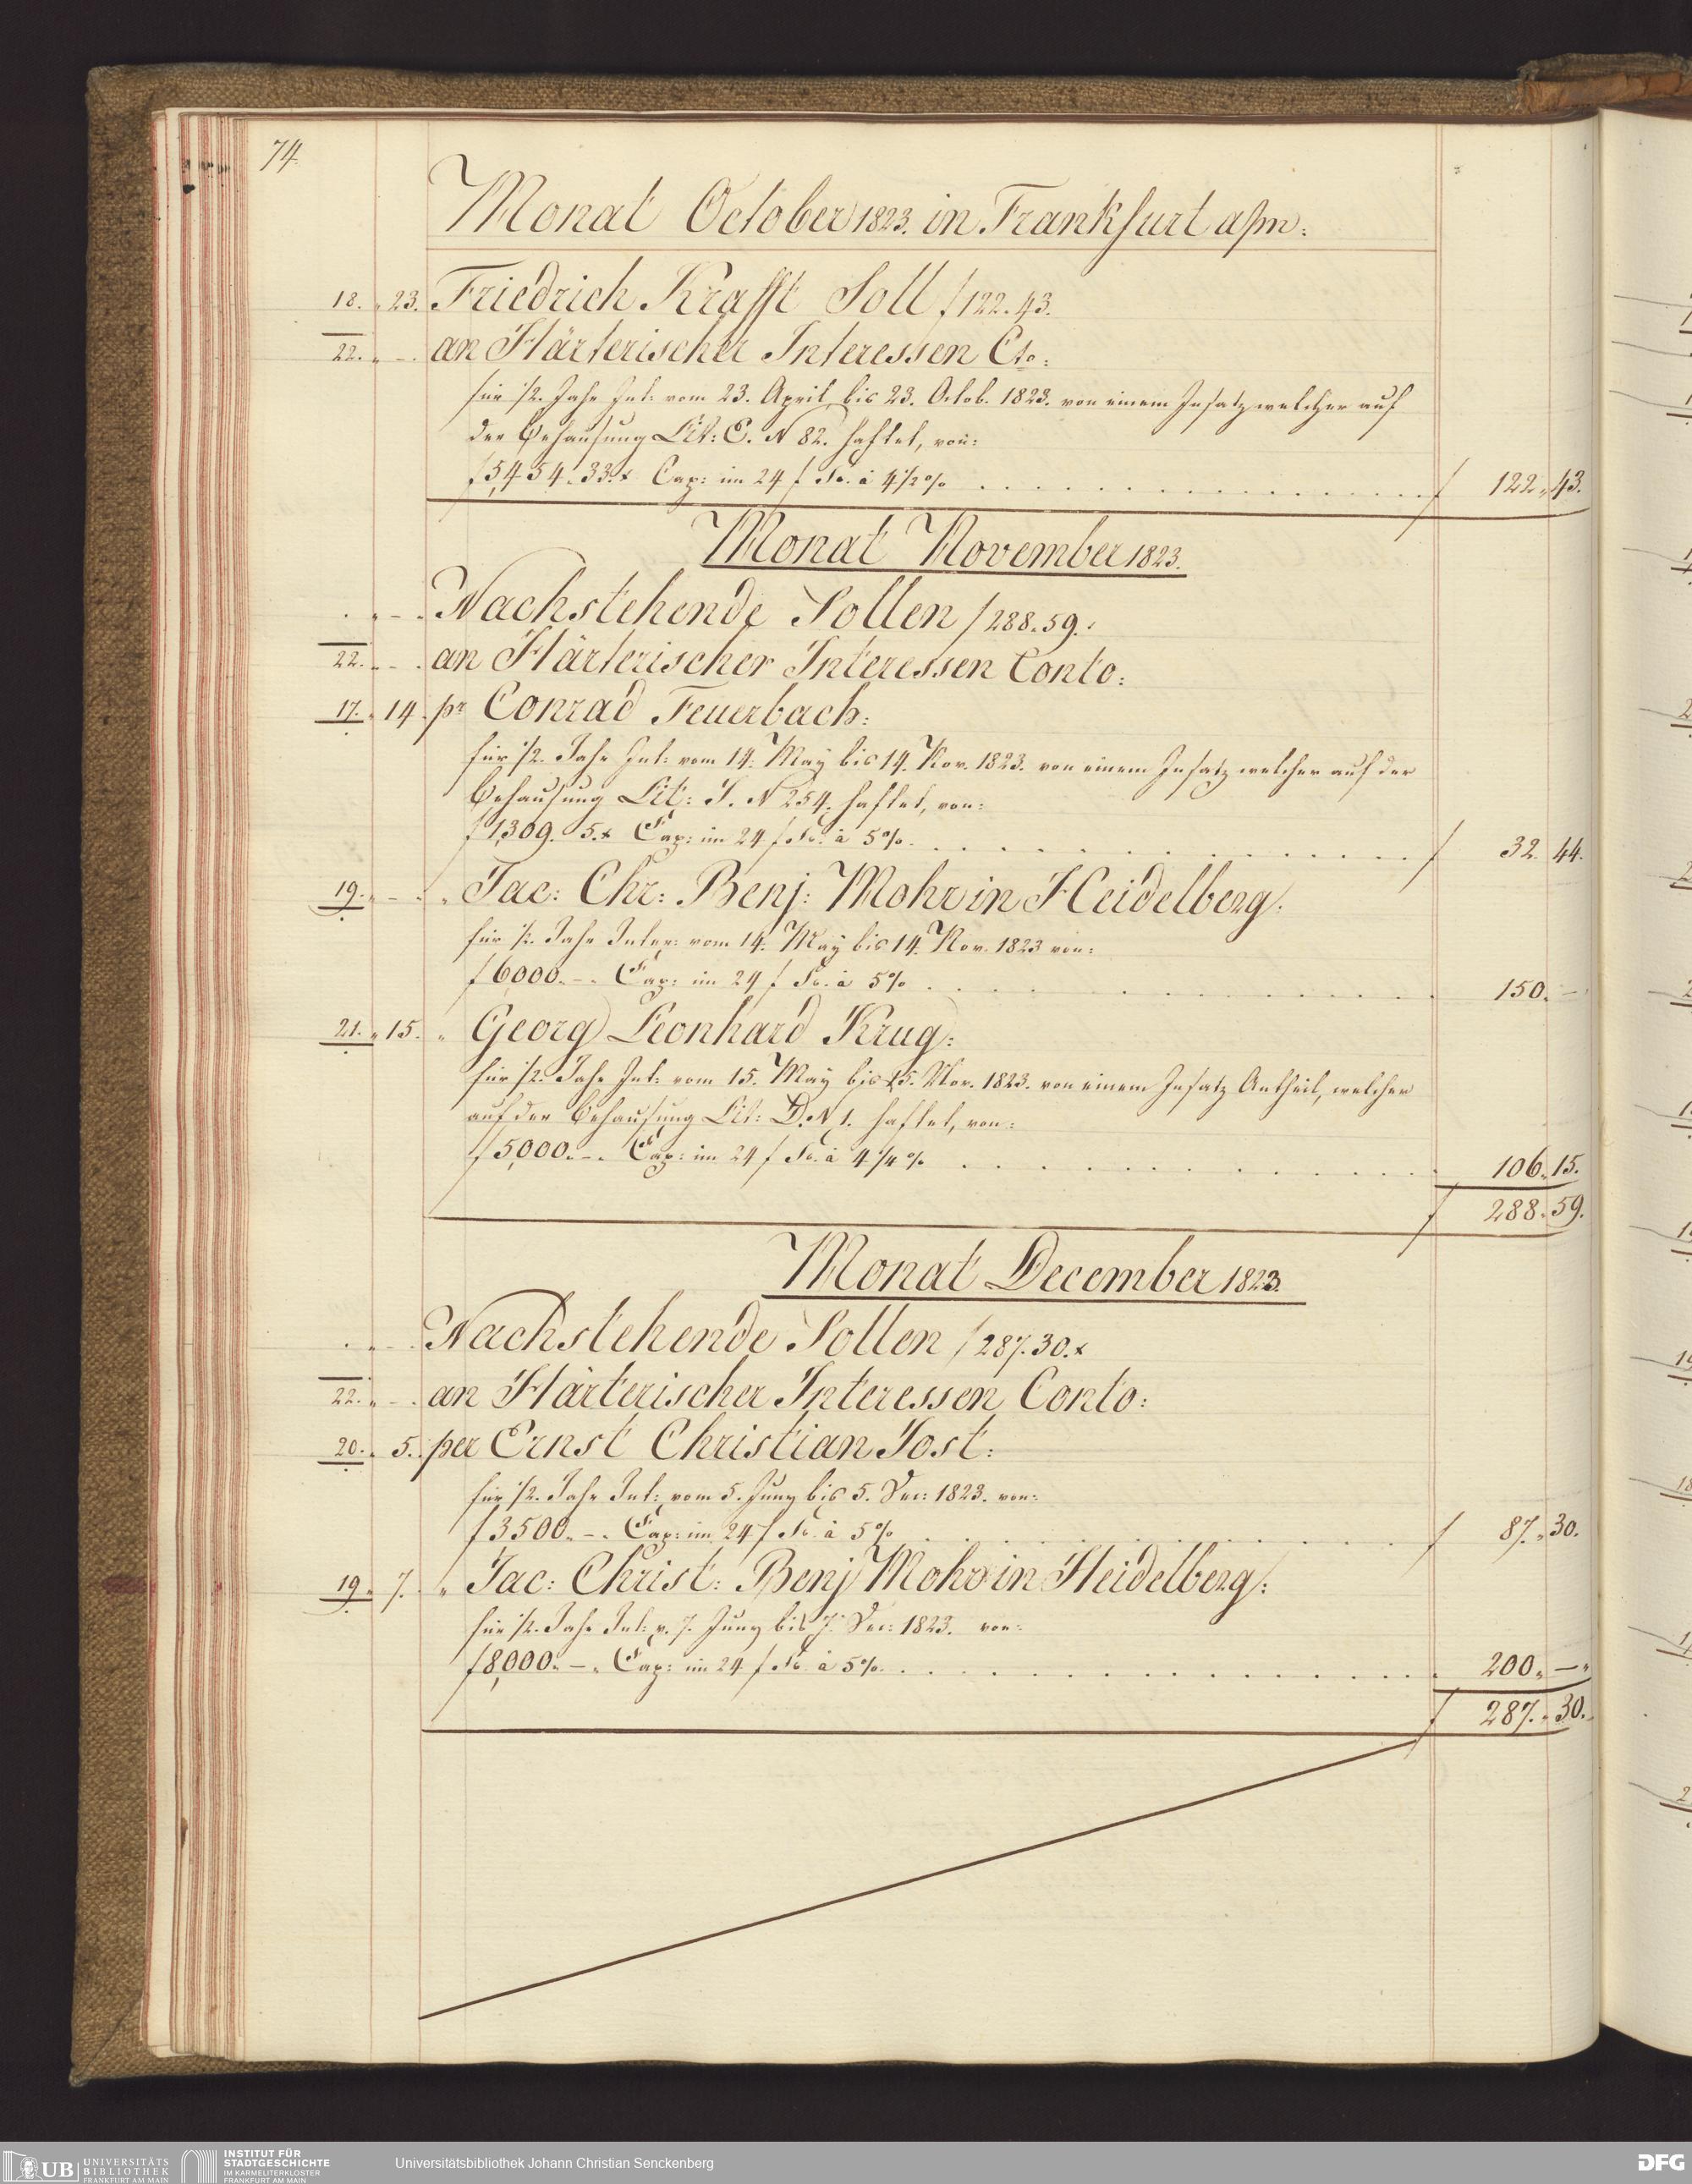 74.
Monat October 1823. in Frankfurt a/m:
18. „ 23. Friedrich Krafft Soll f 122. 43.
22. „ – . an Härterischer Interessen Cto:
für ½. Jahr Int: vom 23. April bis 23. Octob. 1823. von einem Insatz welcher auf
der Behausung Lit: E. N 82. haftet, von:
f 5,454. 33.x Cap: im 24 f Fs. à 4½% f 122. „ 43.
Monat November 1823.
. „ – . Nachstehende Sollen f 288. 59.
22. „ – . an Härterischer Interessen Conto:
17. „ 14. pr Conrad Feuerbach:
für ½. Jahr Int: vom 14. May bis 14. Nov. 1823. von einem Insatz welcher auf der
Behausung Lit: J. N 254. haftet, von:
f 1,309. 5.x Cap: im 24 f Fs. à 5% f 32. 44.
19. „ – . „ Jac: Chr: Benj: Mohr in Heidelberg:
für ½. Jahr Inter: vom 14. May bis 14. Nov. 1823 von:
f 6,000. – . Cap: im 24 f Fs. à 5% 150. –
21. „ 15. „ Georg Leonhard Krug:
für ½. Jahr Int: vom 15. May bis 15. Nov. 1823. von einem Insatz Antheil, welcher
auf der Behausung Lit: D. N 1. haftet, von:
f 5,000. – . Cap: im 24 f Fs. à 4¼% 106. „ 15.
f 288. 59.
Monat December 1823.
. „ – . Nachstehende Sollen f 287. 30.x
22. „ – . an Härterischer Interessen Conto:
20. „ 5. per Ernst Christian Jost:
für ½. Jahr Int: vom 5. Juny bis 5. Dec: 1823. von:
f 3,500. – . Cap: im 24 f Fs. à 5% f 87. „ 30.
19. „ 7. „ Jac: Christ: Benj Mohr in Heidelberg:
für ½. Jahr Int: v. 7. Juny bis 7. Dec: 1823. von:
f 8,000. – . Cap: im 24 f Fs. à 5% 200. „ – „
f 287. „ 30.
UB UNIVERSITÄTS
BIBLIOTHEK
FRANKFURT AM MAIN
INSTITUT FÜR
STADTGESCHICHTE
IM KARMELITERKLOSTER
FRANKFURT AM MAIN
Universitätsbibliothek Johann Christian Senckenberg
DFG